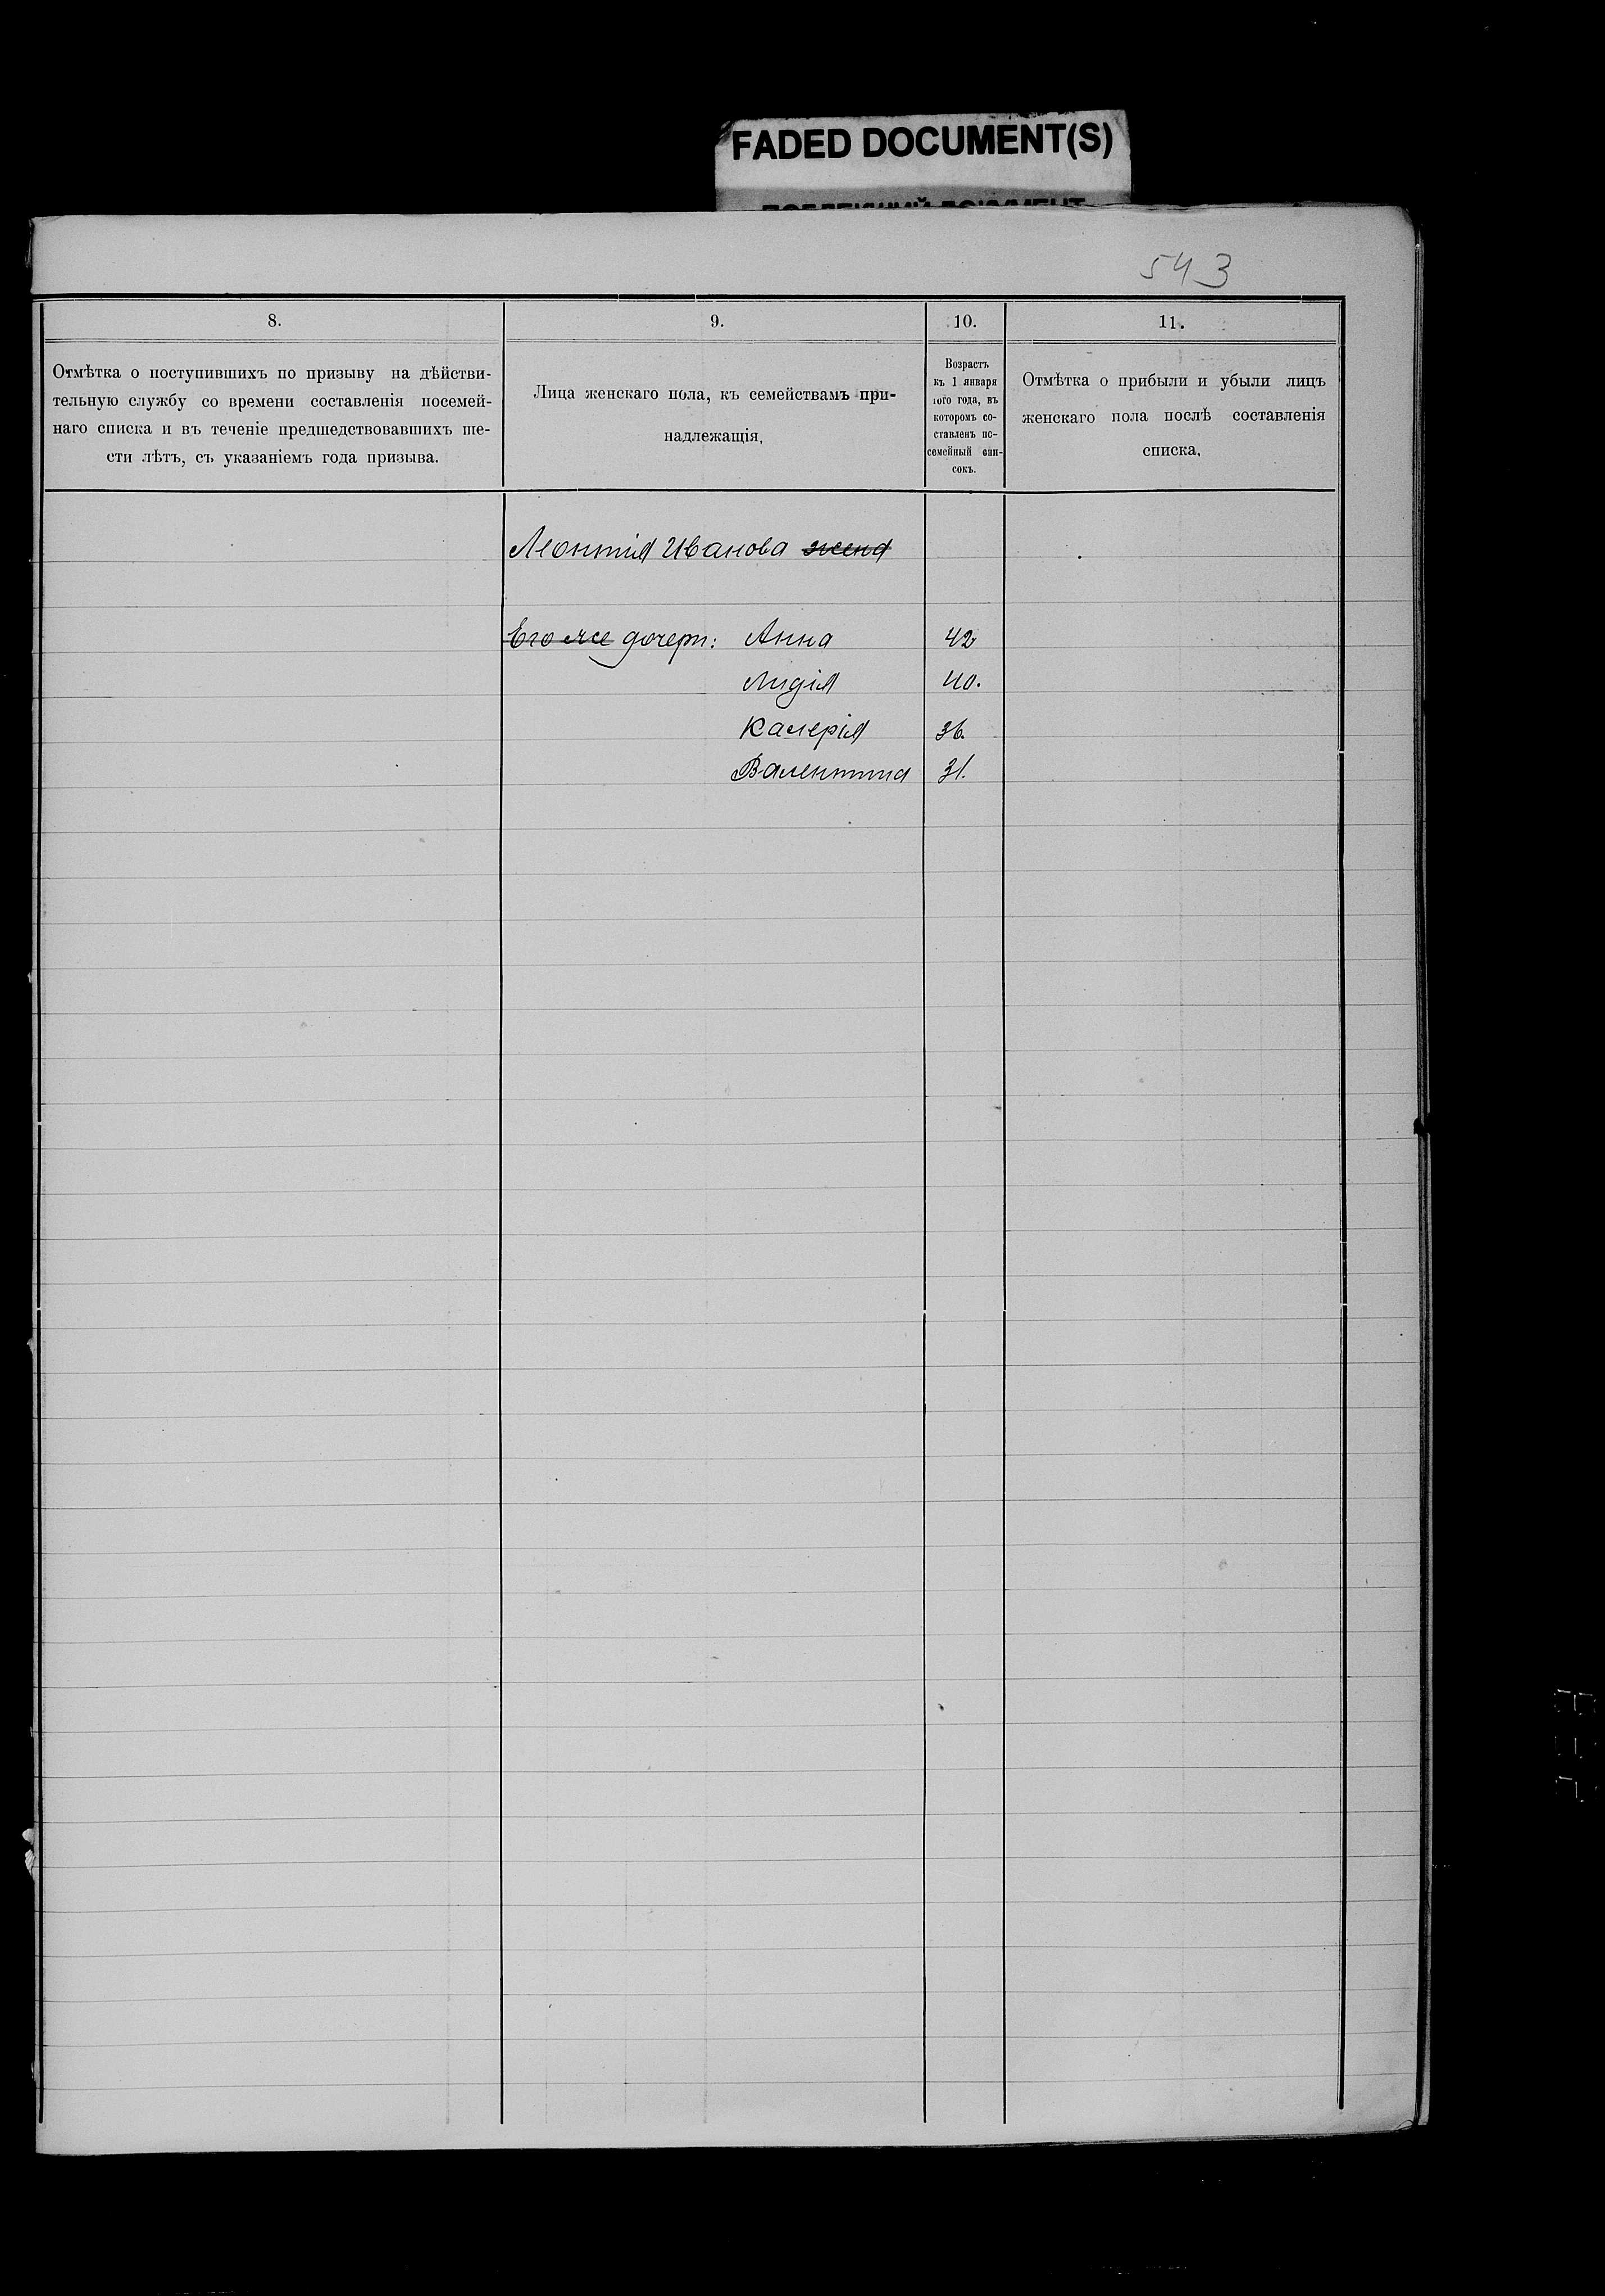 FADED DOCUMENT(S)
543
8.
9.
10.
11.
Отмѣтка о поступившихъ по призыву на дѣйстви-
тельную службу со времени составленія посемей-
наго списка и въ теченіе предшедствовавшихъ ше-
сти лѣтъ, съ указаніемъ года призыва.
Лица женскаго пола, къ семействамъ при-
надлежащія,
Возрастъ
къ 1 января
того года, въ
которомъ со-
ставленъ по-
семейный спи-
сокъ.
Отмѣтка о прибыли и убыли лицъ
женскаго пола послѣ составленія
списка,
Леонтія Иванова жена
Его же дочери: Анна 42
Лидія 40.
Калерія 36.
Валентина 31.